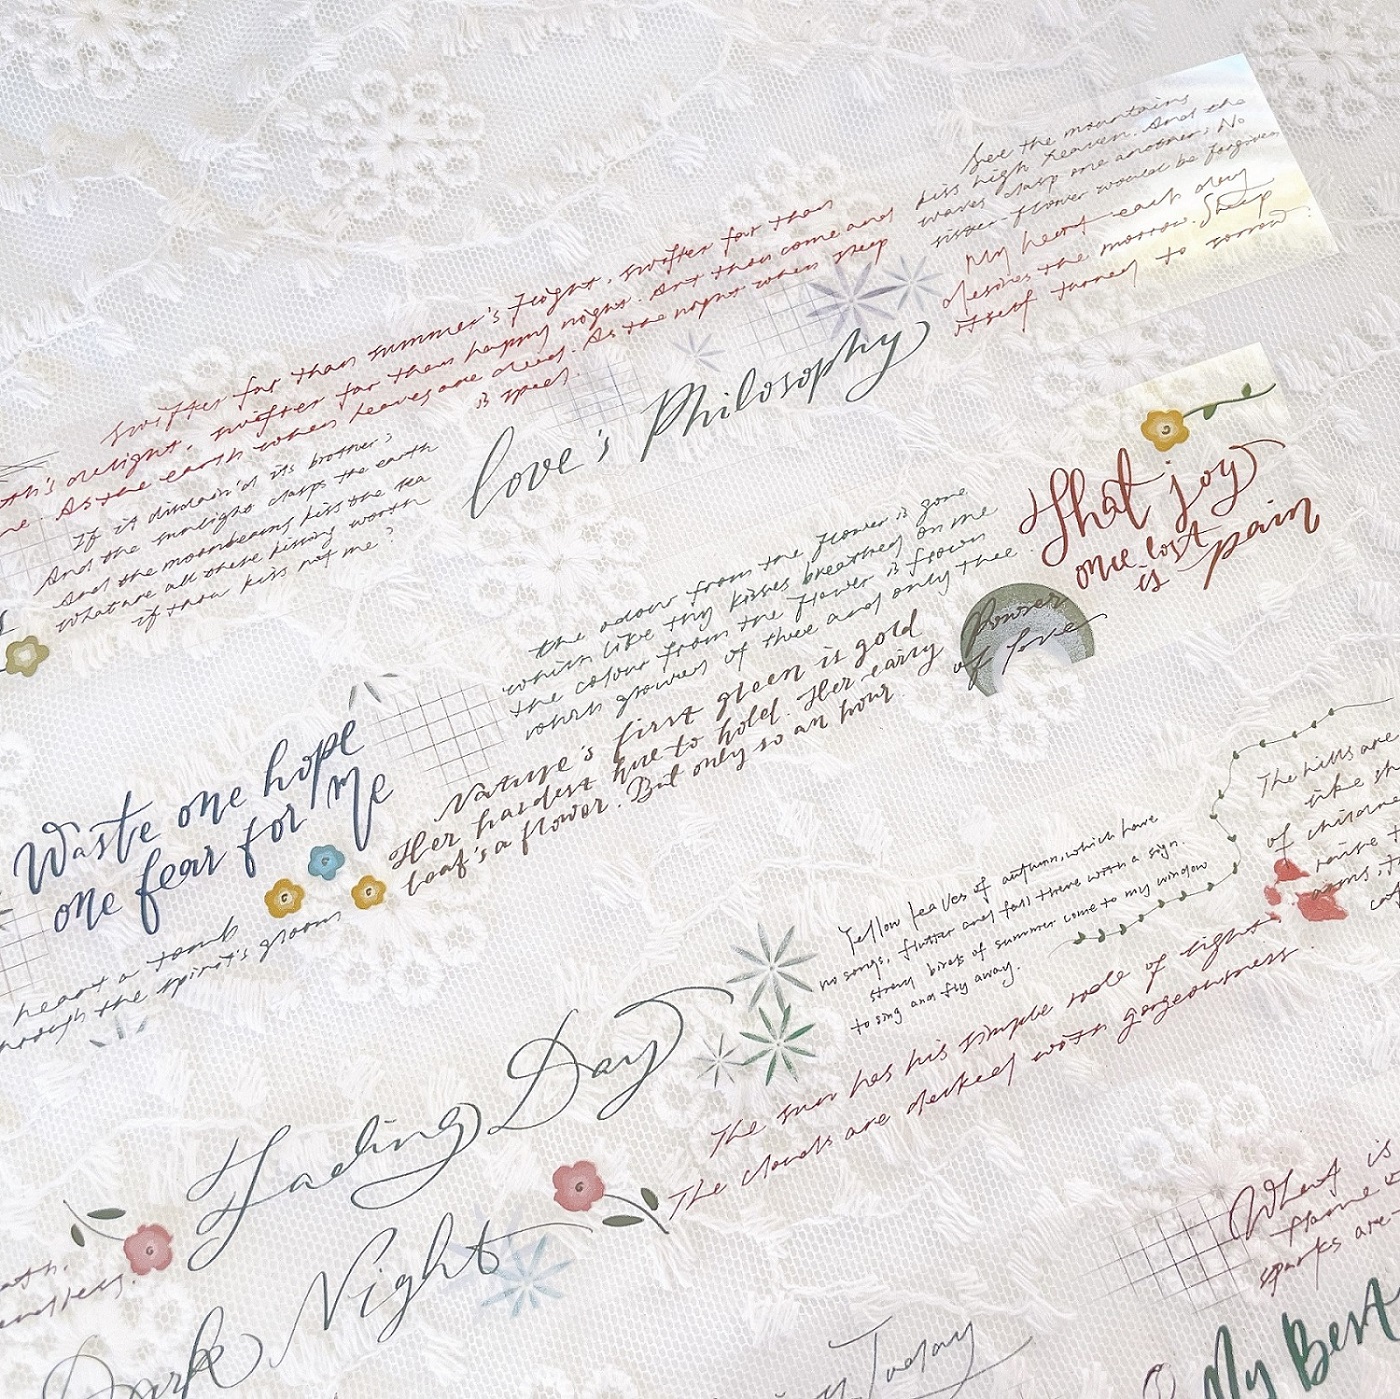 See the mountains
kiss high heaven. And the
waves clasp one another; No
sister-flower would be forgiven
My heart each day
desires the morrow. Sleep
itself turned to sorrow.
Swifter far than summer's flight, swifter far than
th's delight, swifter far than happy night. Art thou come and
ne. As the earth when leaves are dead. As the night when sleep
is sped.
If it disdain'd its brother;
And the sunlight clasps the earth
And the moonbeams kiss the sea
what are all these kissing worth
if thou kiss not me?
Love's Philosophy
That joy
once lost
is pain
the odour from the flower is gone
which like thy kisses breathed on me
the colour from the flower is flown
which glowed of thee and only thee.
Power
of love
Nature's first green is gold
Her hardest hue to hold. Her early
leaf's a flower. But only so an hour
Waste one hope
one fear for me
heart a tomb
the spirit's gloom
The hills are
like sh
of children
raise t
arms, t
Yellow leaves of autumn, which have
no songs, flutter and fall there with a sign.
stray birds of summer come to my window
to sing and fly away.
The sun has his simple robe of light.
The clouds are decked with gorgeousness.
Fading Day
Dark Night
What is
flame
sparks are
Today
My Best